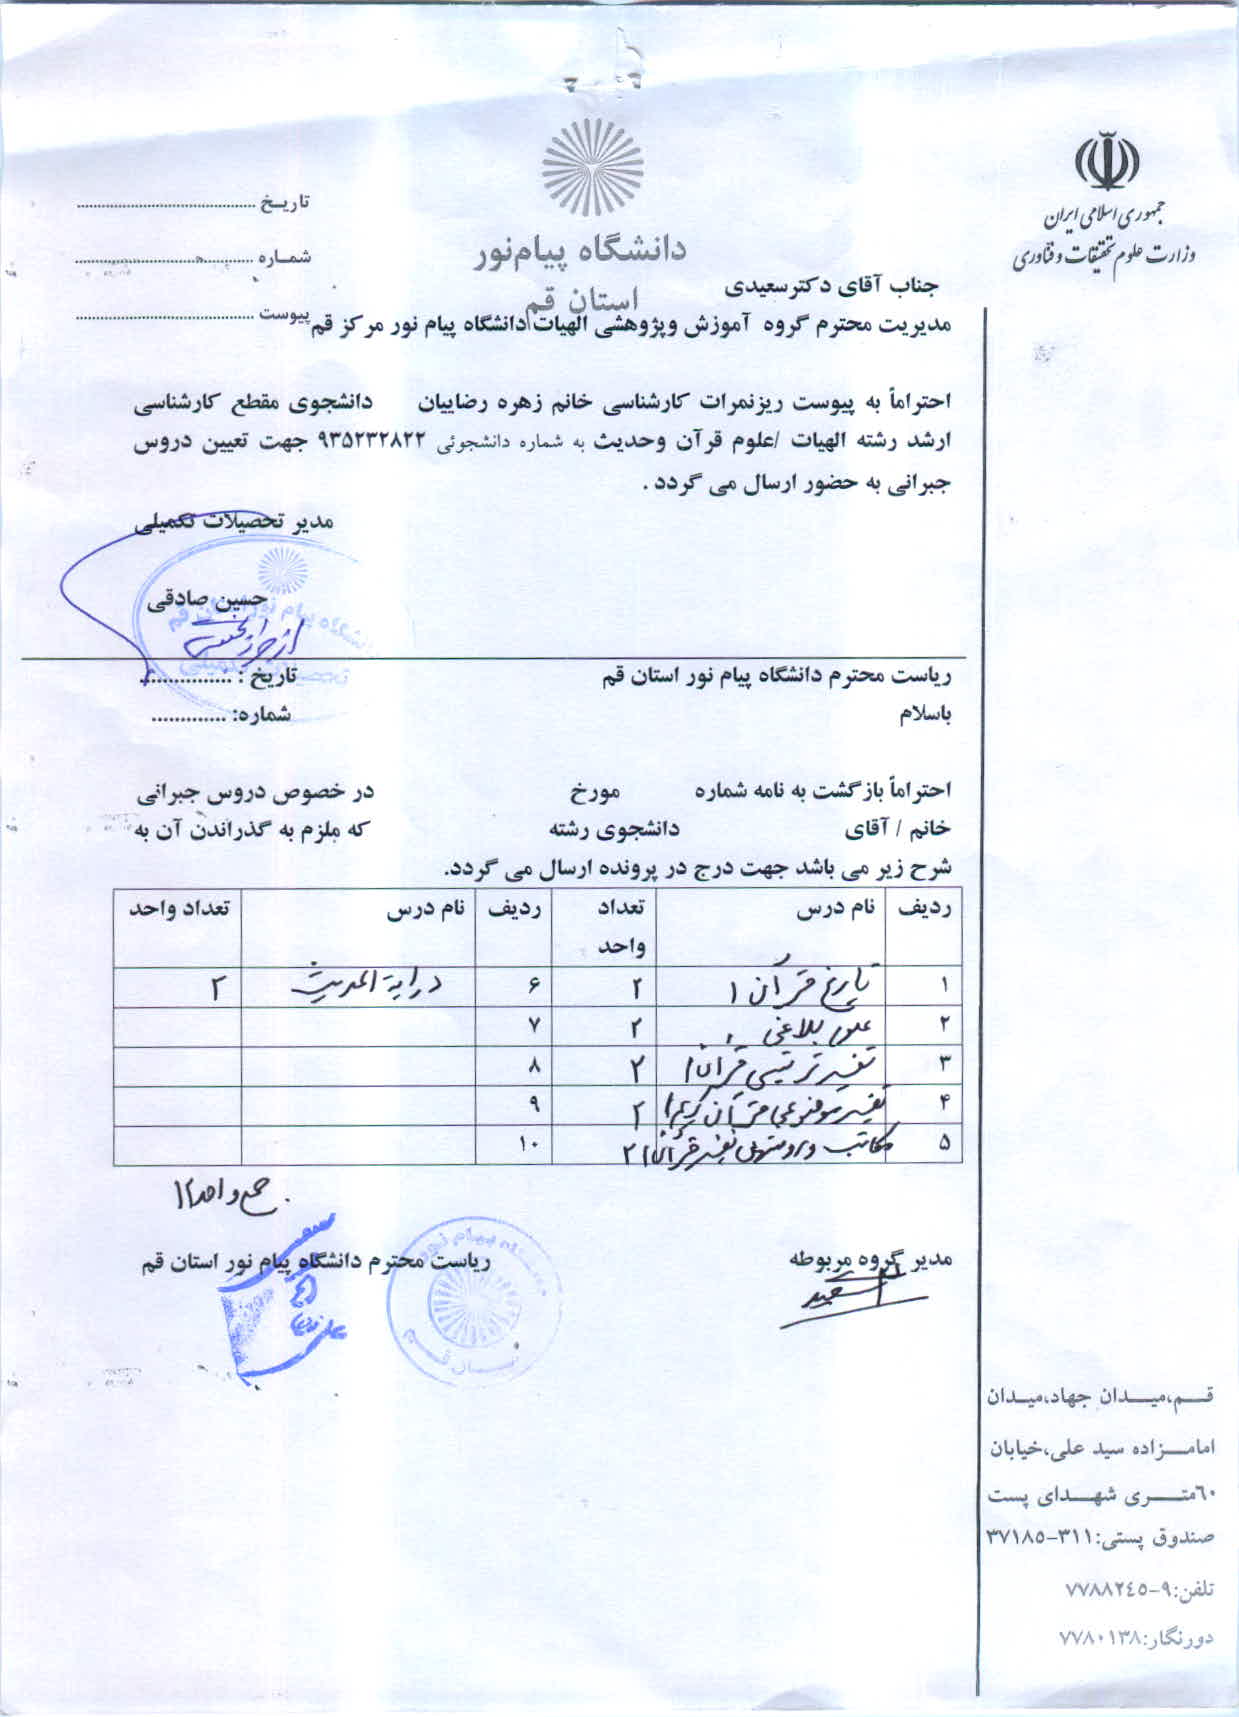 جمهوری اسلامی ایران
وزارت علوم تحقیقات و فناوری
دانشگاه پیام‌نور
استان قم
تاریـخ ......................................
شمـاره ......................................
پیوست ......................................
جناب آقای دکترسعیدی
مدیریت محترم گروه آموزش وپژوهشی الهیات دانشگاه پیام نور مرکز قم
احتراماً به پیوست ریزنمرات کارشناسی خانم زهره رضاییان دانشجوی مقطع کارشناسی
ارشد رشته الهیات /علوم قرآن وحدیث به شماره دانشجوئی ۹۳۵۲۳۲۸۲۲ جهت تعیین دروس
جبرانی به حضور ارسال می گردد .
مدیر تحصیلات تکمیلی
حسین صادقی
دانشگاه پیام نور استان قم
تحصیلات تکمیلی
ریاست محترم دانشگاه پیام نور استان قم
تاریخ : ...............
باسلام
شماره: .............
احتراماً بازگشت به نامه شماره مورخ در خصوص دروس جبرانی
خانم / آقای دانشجوی رشته که ملزم به گذراندن آن به
شرح زیر می باشد جهت درج در پرونده ارسال می گردد.
ردیف نام درس تعداد واحد ردیف نام درس تعداد واحد
۱ تاریخ قرآن ۱ ۲ ۶ درایة الحدیث ۲
۲ علوم بلاغی ۱ ۲ ۷
۳ تفسیر ترتیبی قرآن ۱ ۲ ۸
۴ تفسیر موضوعی قرآن کریم ۱ ۲ ۹
۵ مکاتب و روشهای تفسیر قرآن ۱ ۲ ۱۰
جمع واحد ۱۲
مدیر گروه مربوطه
ریاست محترم دانشگاه پیام نور استان قم
سعیدی
قــم،میــدان جهاد،میـدان
امامـــزاده سید علی،خیابان
۶۰متــــری شهـــدای پست
صندوق پستی:۳۱۱-۳۷۱۸۵
تلفن:۹-۷۷۸۸۲۴۵
دورنگار:۷۷۸۰۱۳۸